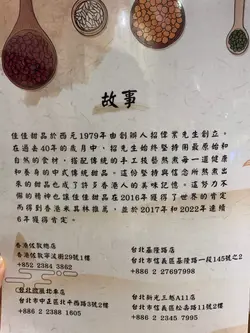 故事
佳佳甜品於西元1979年由創辦人招偉業先生創立。
在過去40年的歲月中，招先生始終堅持用最原始和
自然的食材，搭配傳統的手工技藝熬煮每一道健康
和養身的中式傳統甜品。這份堅持與信念所熬煮出
來的甜品也成了許多香港人的美味記憶。這努力不
懈的精神也讓佳佳甜品在2016年獲得了世界的肯定
而得到香港米其林推薦，並於2017年和2022年連續
6年獲得肯定。
香港佐敦總店
香港佐敦寧波街29號1樓
+852 2384 3862
台北微風北車店
台北市中正區北平西路3號2樓
+886 2 2388 1605
台北基隆路店
台北市信義區基隆路一段145號之2
+886 2 27697998
台北新光三越A11店
台北市信義區松壽路11號2樓
+886 2 2345 7995